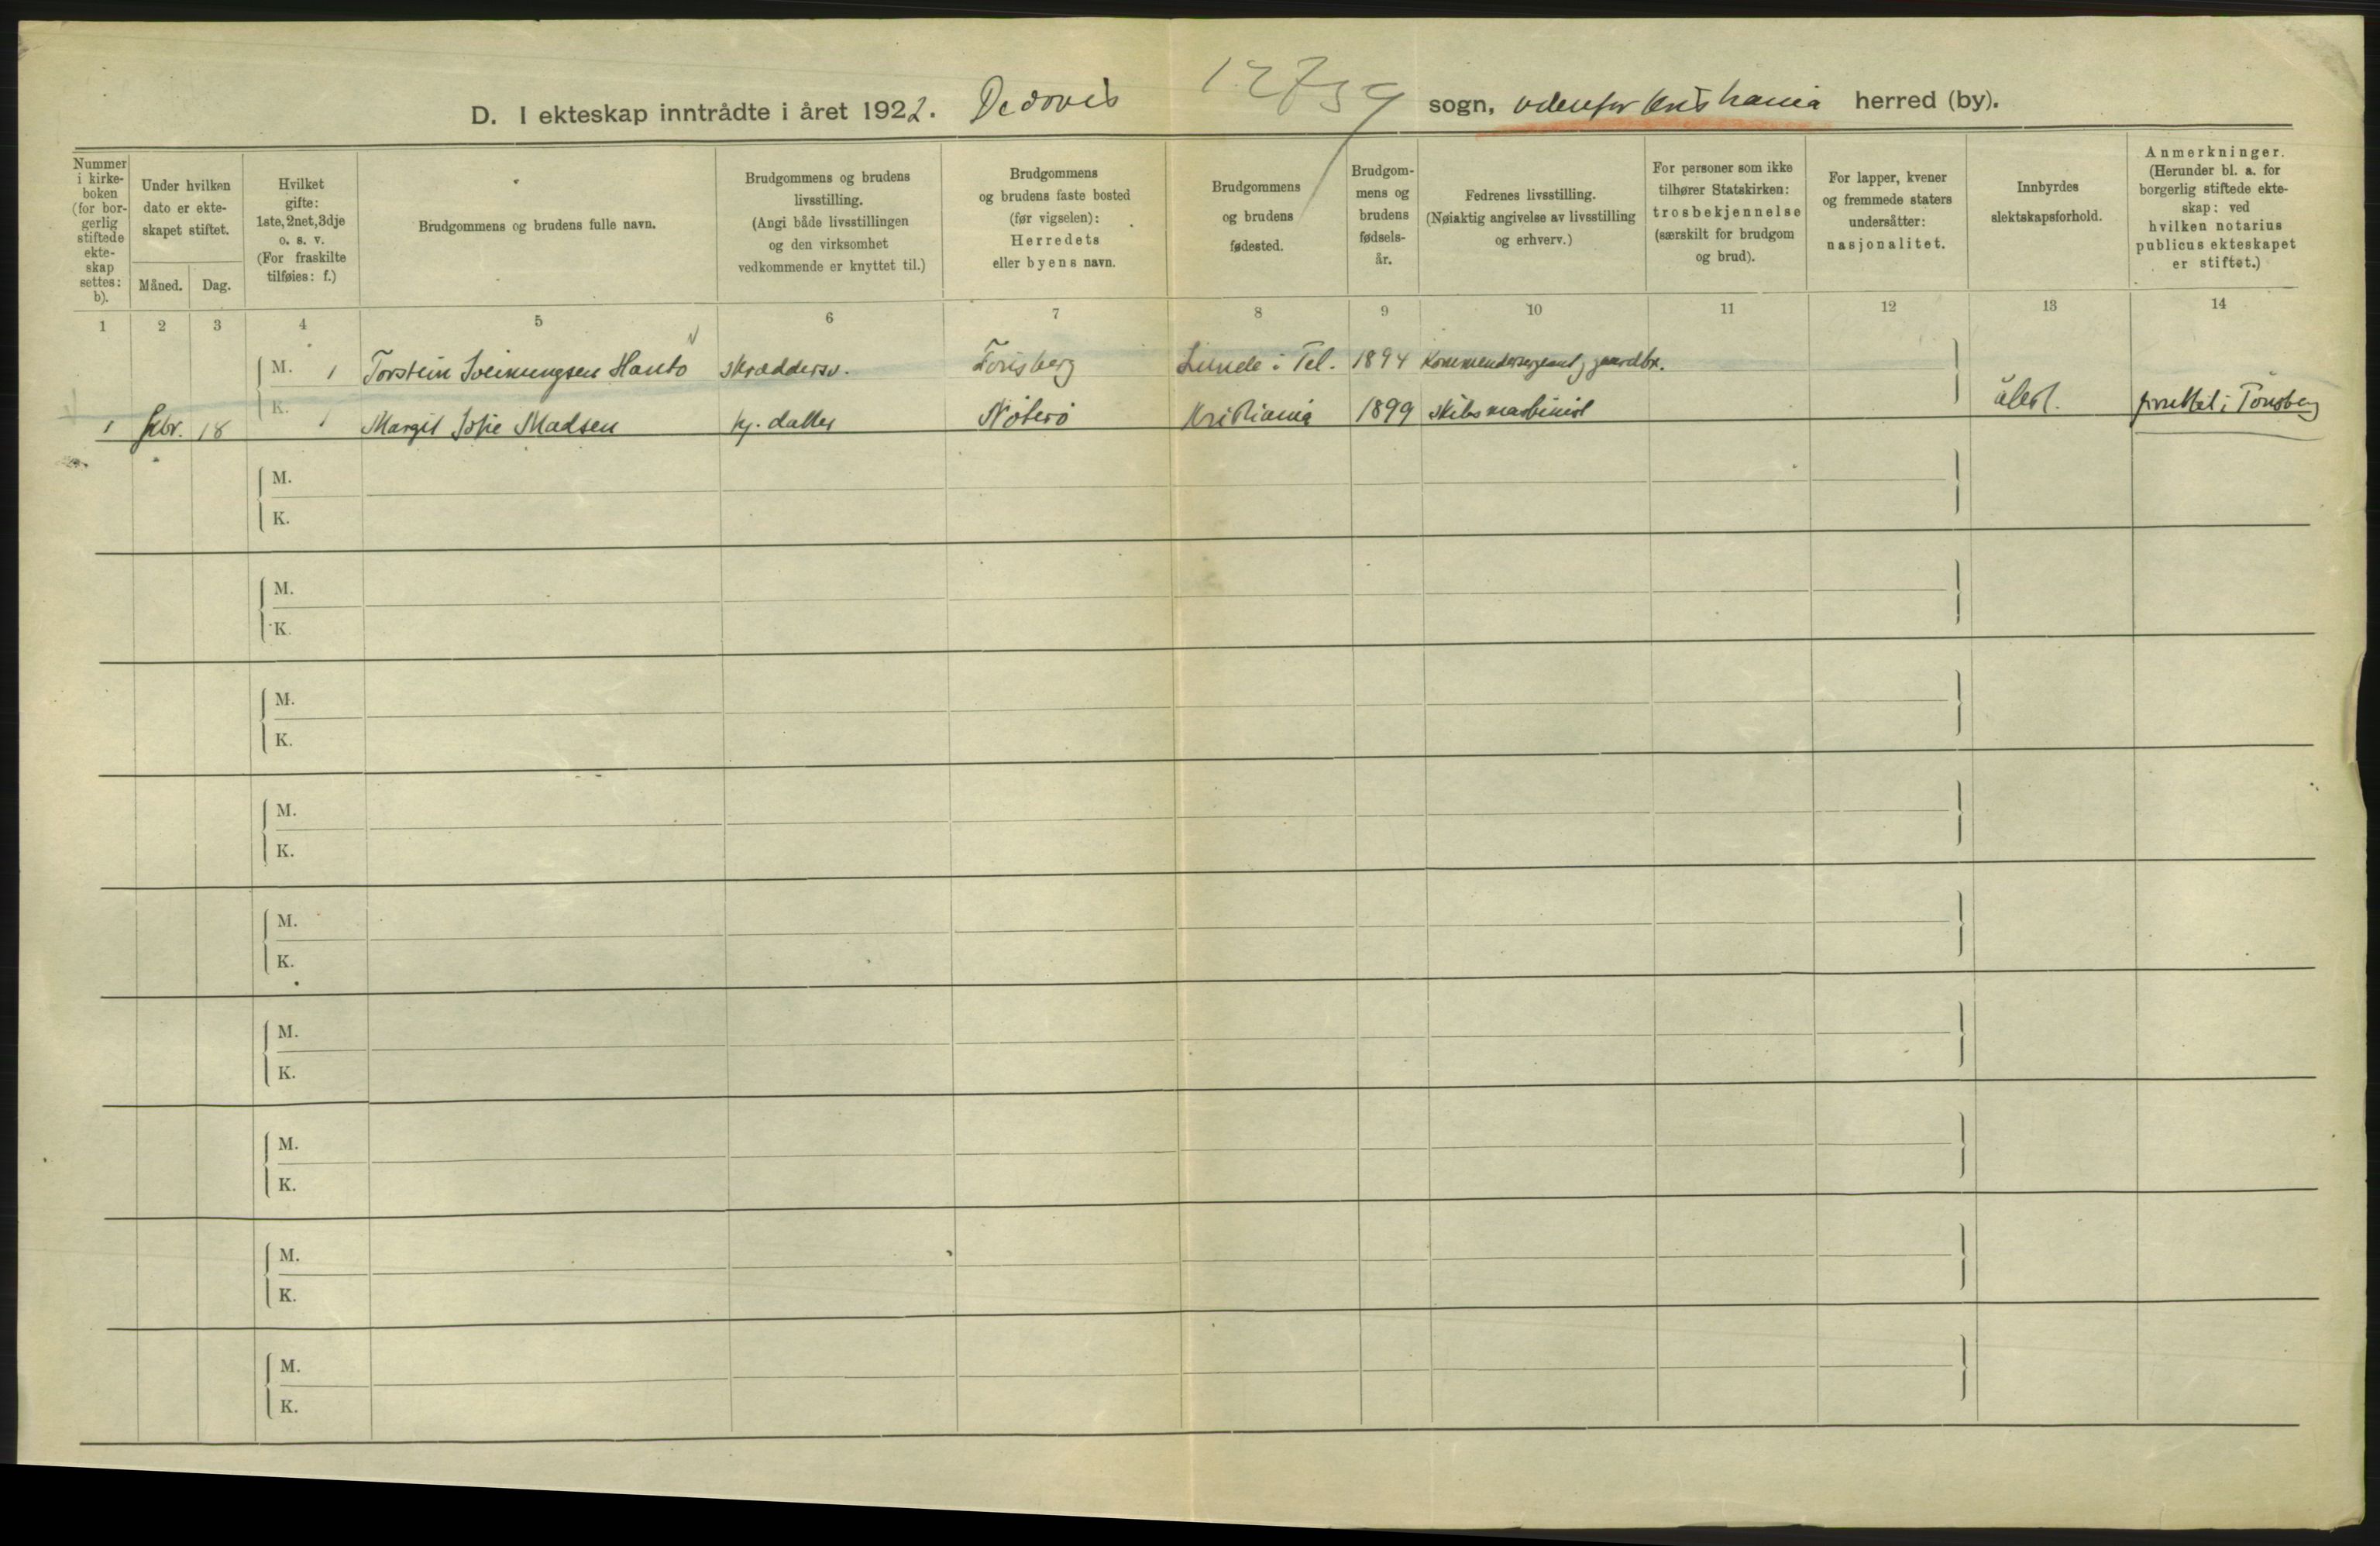 12759
D. I ekteskap inntrådte i året 1922. De døves sogn, utenfor Kristiania herred (by).
Nummer i kirkeboken (for borgerlig stiftede ekteskap settes: b).
Under hvilken dato er ekteskapet stiftet.
Måned. Dag.
Hvilket gifte: 1ste, 2net, 3dje o. s. v. (For fraskilte tilføies: f.)
Brudgommens og brudens fulle navn.
Brudgommens og brudens livsstilling. (Angi både livsstillingen og den virksomhet vedkommende er knyttet til.)
Brudgommens og brudens faste bosted (før vigselen): Herredets eller byens navn.
Brudgommens og brudens fødested.
Brudgommens og brudens fødselsår.
Fedrenes livsstilling. (Nøiaktig angivelse av livsstilling og erhverv.)
For personer som ikke tilhører Statskirken: trosbekjennelse (særskilt for brudgom og brud).
For lapper, kvener og fremmede staters undersåtter: nasjonalitet.
Innbyrdes slektskapsforhold.
Anmerkninger. (Herunder bl. a. for borgerlig stiftede ekteskap: ved hvilken notarius publicus ekteskapet er stiftet.)
1 2 3 4 5 6 7 8 9 10 11 12 13 14
M. 1 Torstein Sveinungsen Hanto skræddersv. Tønsberg Lunde i Tel. 1894 gaardbr.
1 febr. 18 K. 1 Margit Sofie Madsen hj. datter Nøterø Kristiania 1899 skibsmaskinist ubesl. forrettet i Tønsberg
M.
K.
M.
K.
M.
K.
M.
K.
M.
K.
M.
K.
M.
K.
M.
K.
M.
K.